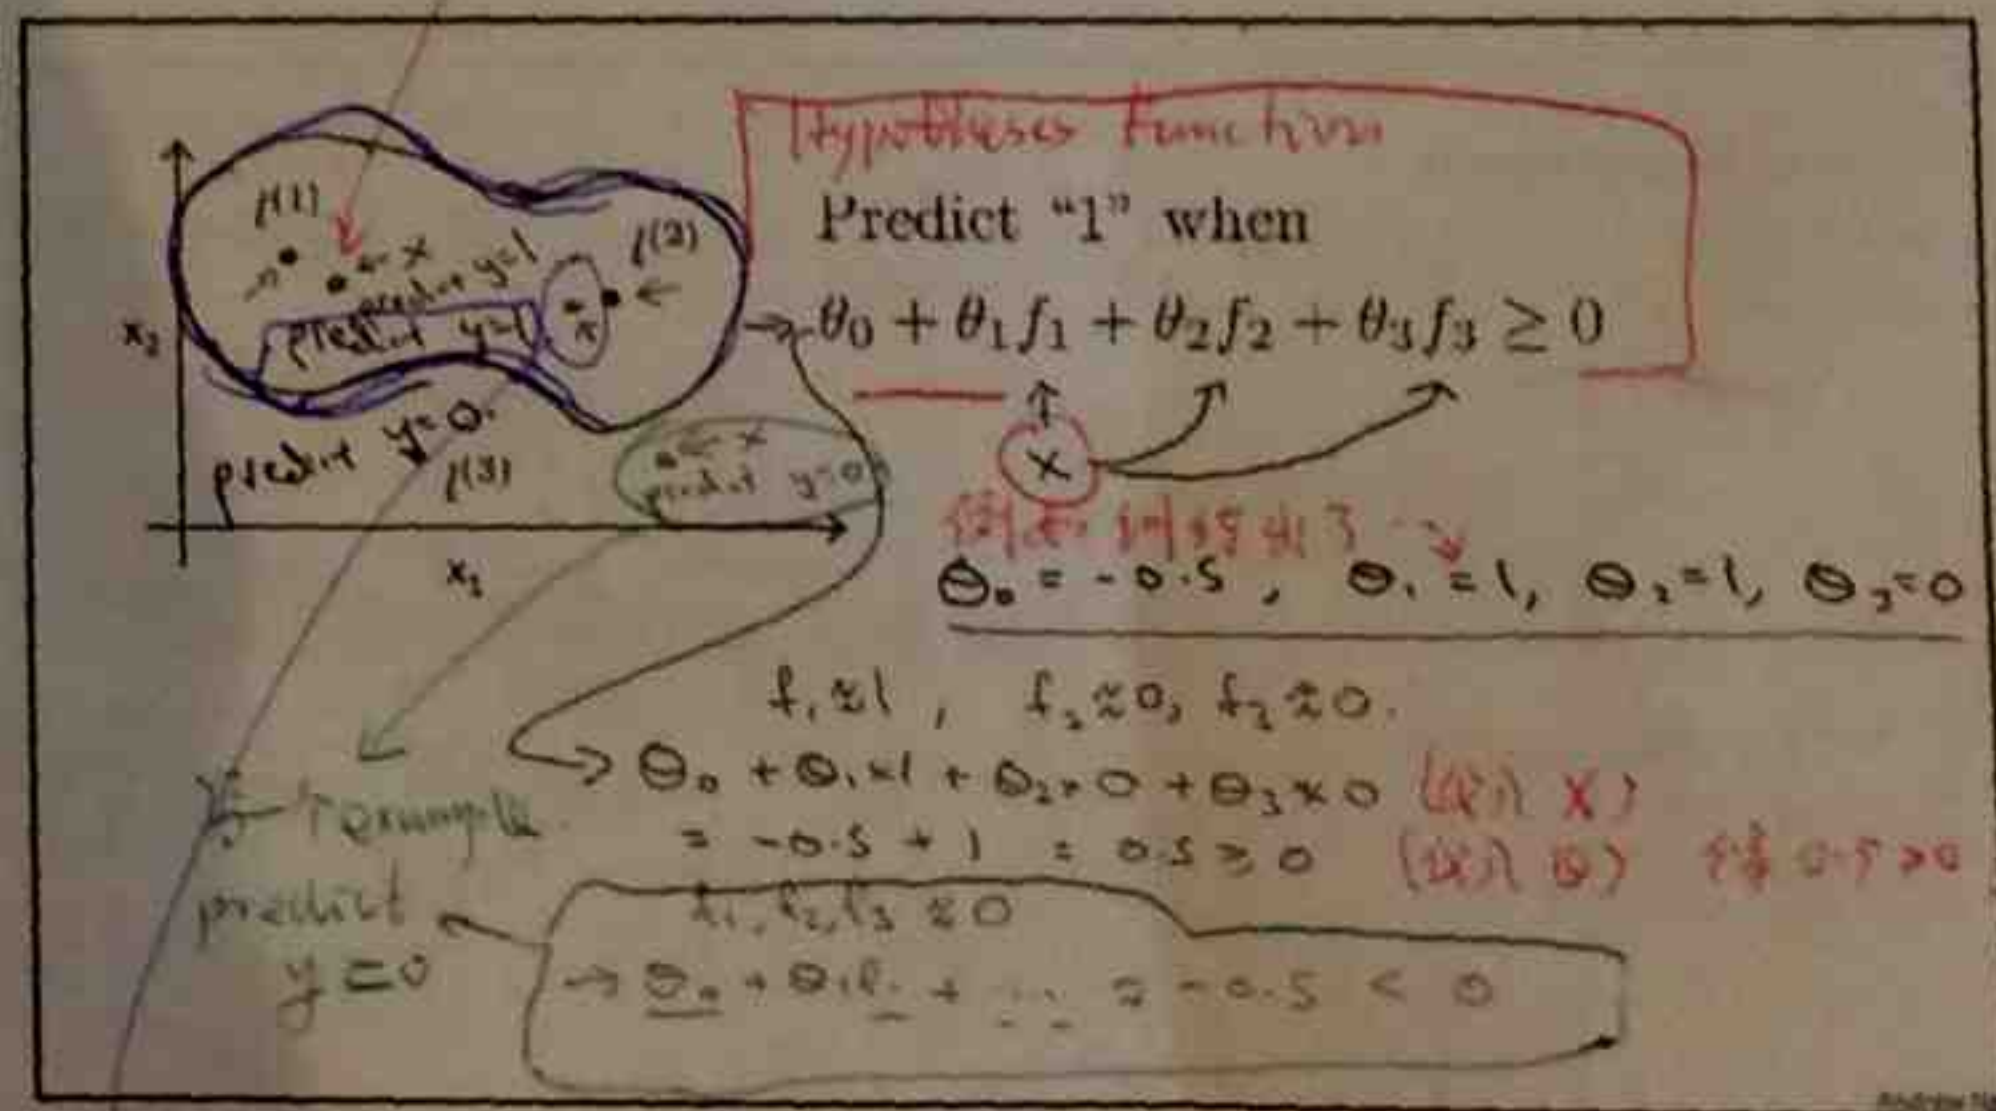 Hypotheses Function
Predict "1" when
θ₀ + θ₁f₁ + θ₂f₂ + θ₃f₃ ≥ 0
l⁽¹⁾
l⁽²⁾
← x
predict y=1
predict y=1
x
x₂
predict y=0.
l⁽³⁾
← x
predict y=0
x₁
x
θ₀ = -0.5, θ₁ = 1, θ₂ = 1, θ₃ = 0
f₁ ≈ 1, f₂ ≈ 0, f₃ ≈ 0.
θ₀ + θ₁×1 + θ₂×0 + θ₃×0
= -0.5 + 1 = 0.5 ≥ 0
0.5 ≥ 0
example
predict
y = 0
f₁, f₂, f₃ ≈ 0
→ θ₀ + θ₁f₁ + ... ≈ -0.5 < 0
Andrew Ng